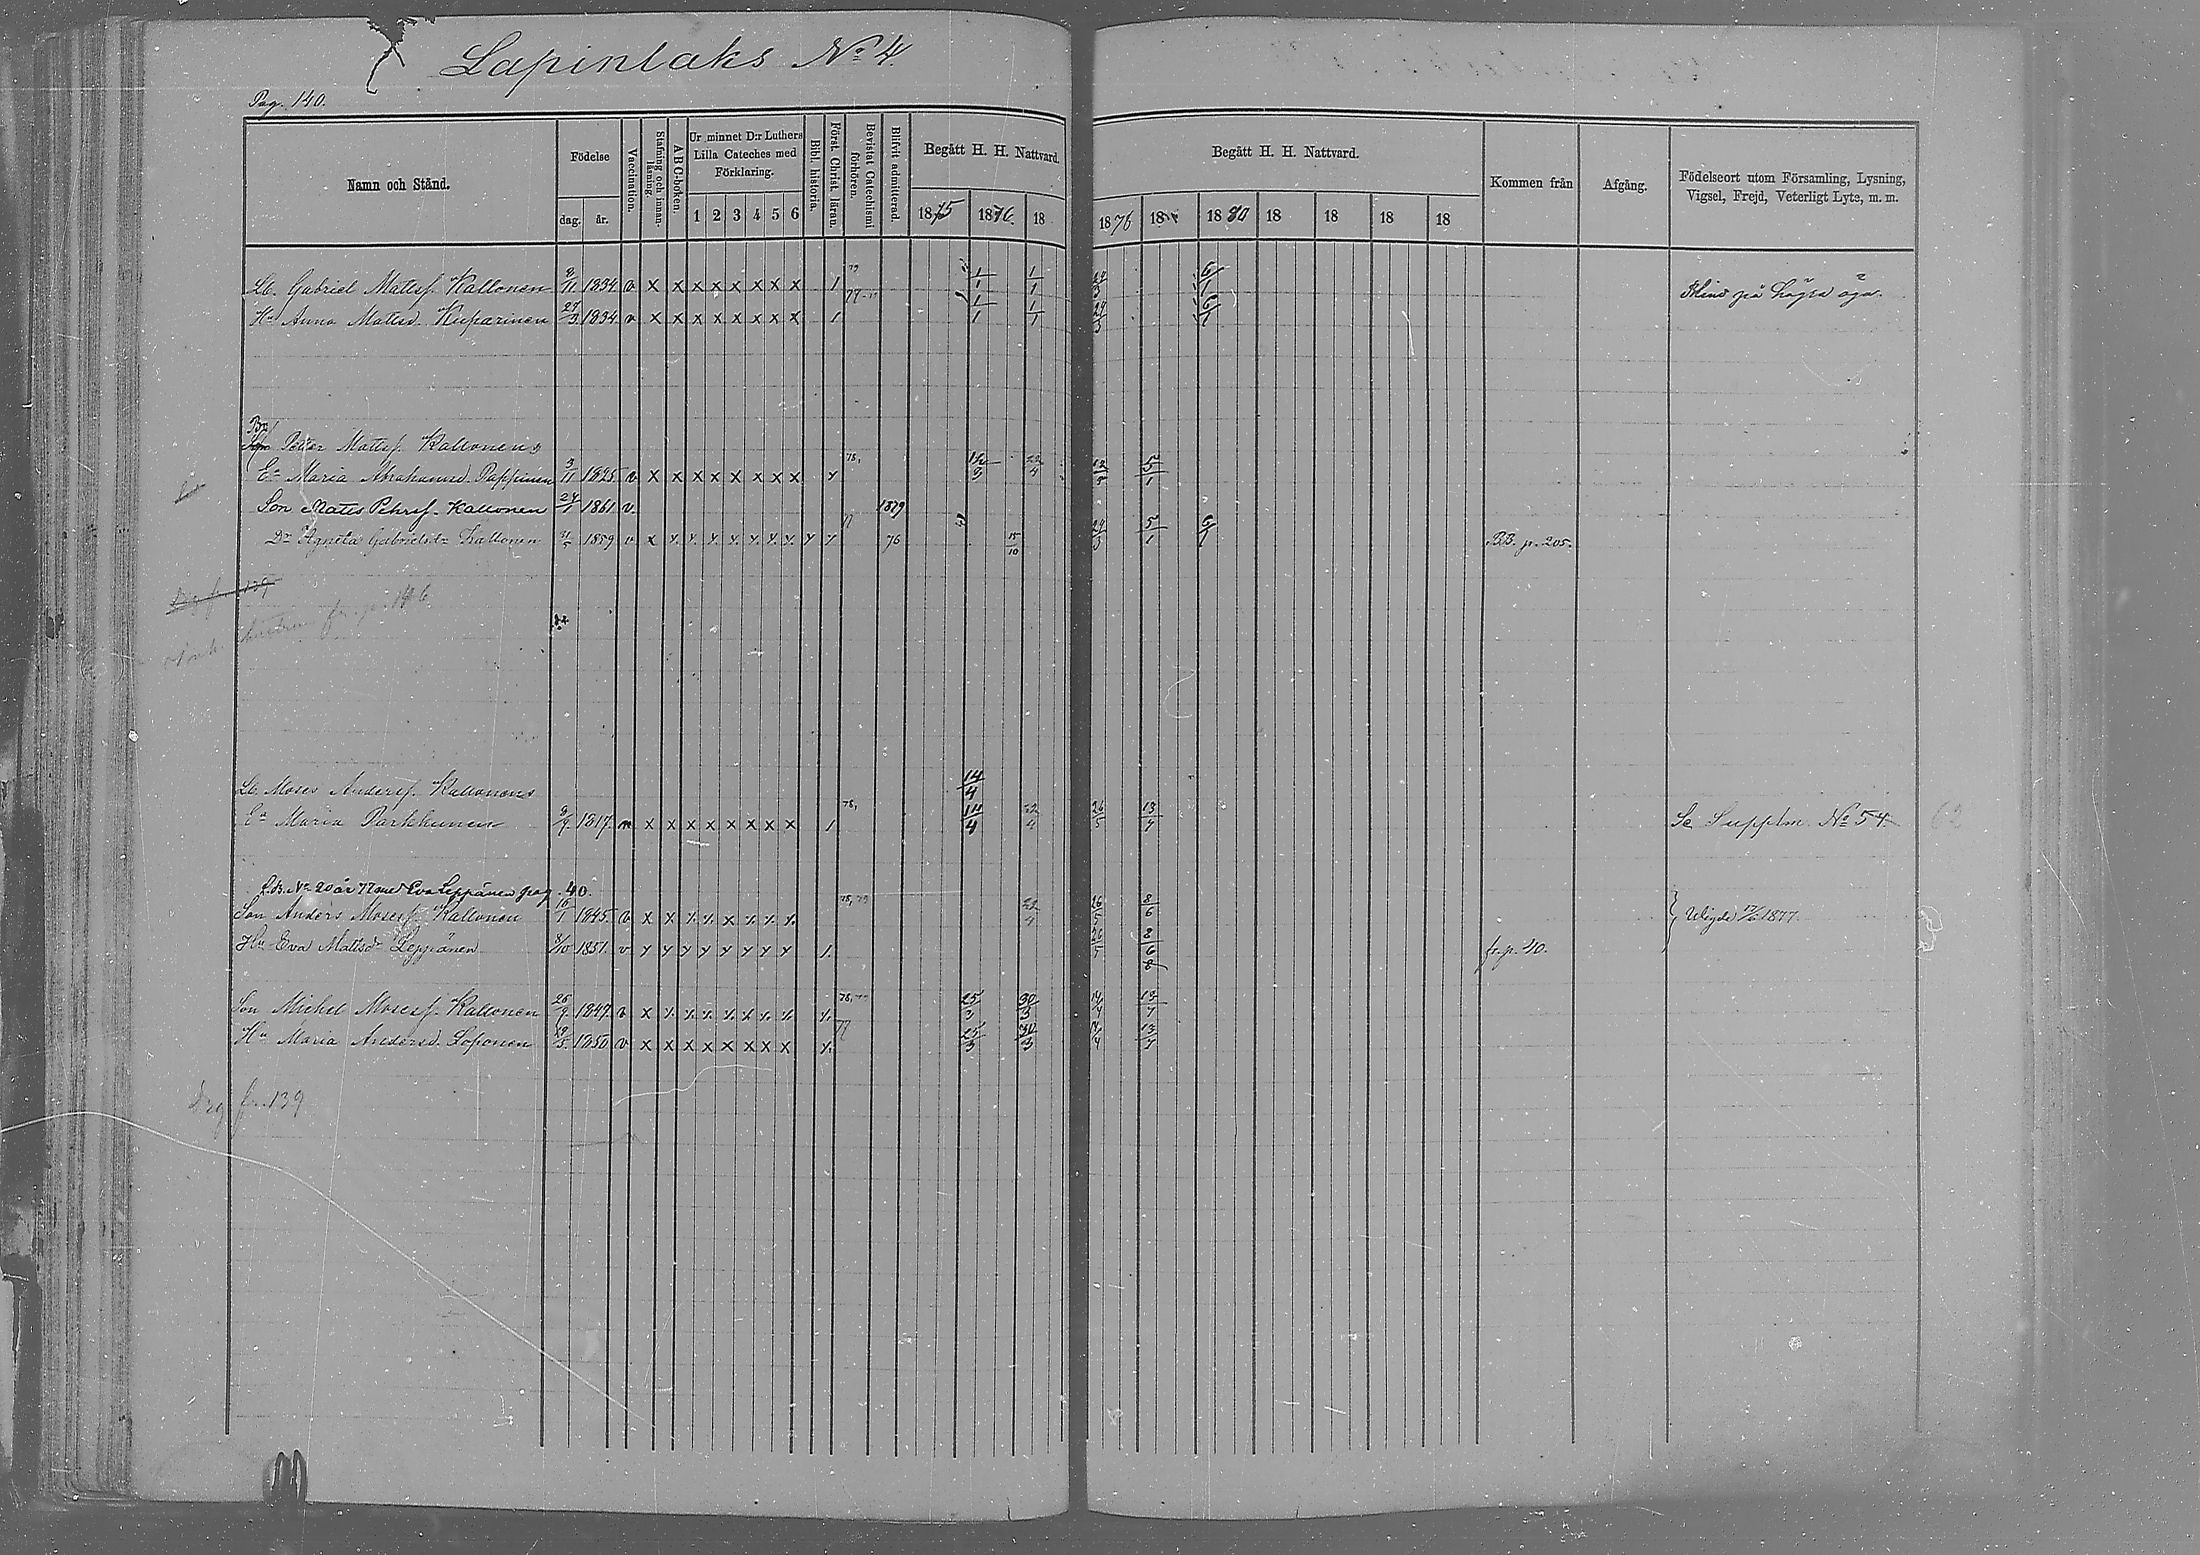 Lapinlaks No 4.
Pag. 140.
Namn och Stånd.
Födelse
dag. år.
Vaccination.
Stafning och innan-läsning.
ABC-boken.
Ur minnet D:r Luthers
Lilla Cateches med
Förklaring.
1 2 3 4 5 6
Bibl. historia.
Först. Christ. läran.
Bevistat Catechismi förhören.
Blifvit admitterad.
Begått H. H. Nattvard.
1875 1876. 18
Begått H. H. Nattvard.
1876 18 1880 18 18 18 18
Kommen från
Afgång.
Födelseort utom Församling, Lysning,
Vigsel, Frejd, Veterligt Lyte, m. m.
Lb. Gabriel Mattsf. Kallonen 8/11 1834 v x x x x x x x x 1 79 1/1 1/1 24/3 6/1 Blind på högra öga.
Hu Anna Mattsd. Kuparinen 27/3 1834 v x x x x x x x x 1 77 1/1 1/1 24/3 6/1
Br
Petter Mattsf. Kallonens
Ea Maria Abrahamsd. Pappinen 3/11 1825 v x x x x x x x x 78, 22/4 12/5 5/1
Son Matts Pehrsf. Kallonen 24/1 1861 v. 1879
Dr Agneta Gabrielsdr Kallonen 1859 v 77 76 15/10 24/3 5/1 6/1 BB. p. 205.
fr. p. 146
Lb. Moses Andersf. Kallonens 14/4
Ea Maria Parkkunen 9/9. 1817. x x x x x x x x 1 78, 14/4 22/4 26/5 13/7 Se Supplm. No 54. 62
L.B. No 20 år 77 med Eva Leppänen pag. 40.
Son Anders Mosesf. Kallonen 16/1 1845. v 78, 79 22/4 26/5 8/6 Vigde 17/6 1877.
Hu Eva Mattsdr Leppänen 8/10 1851. v 1. 26/5 8/6 8 fr. p. 40.
Son Michel Mosesf. Kallonen 26/9. 1847. v 78, 25/3 30/3 14/4 13/7
Hu Maria Andersd. Loponen 19/5. 1850 v x x x x x x x x 77 25/3 30/3 14/4 13/7
fr. 139